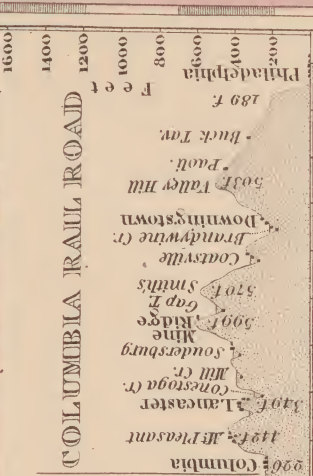 COLUMBIA RAIL ROAD
1600
1400
1200
1000
800
600
400
200
Feet
Philadelphia
189 f.
Buck Tav.
Paoli.
Valley Hill
503f.
Downingstown
Brandywine Cr.
Coatsville
Smith's
570f.
Gap T.
599f.
Mine
Ridge
Soudersburg
Mill Cr.
Conestoga Cr.
Lancaster
349f.
Mt. Pleasant
442f.
Columbia
226